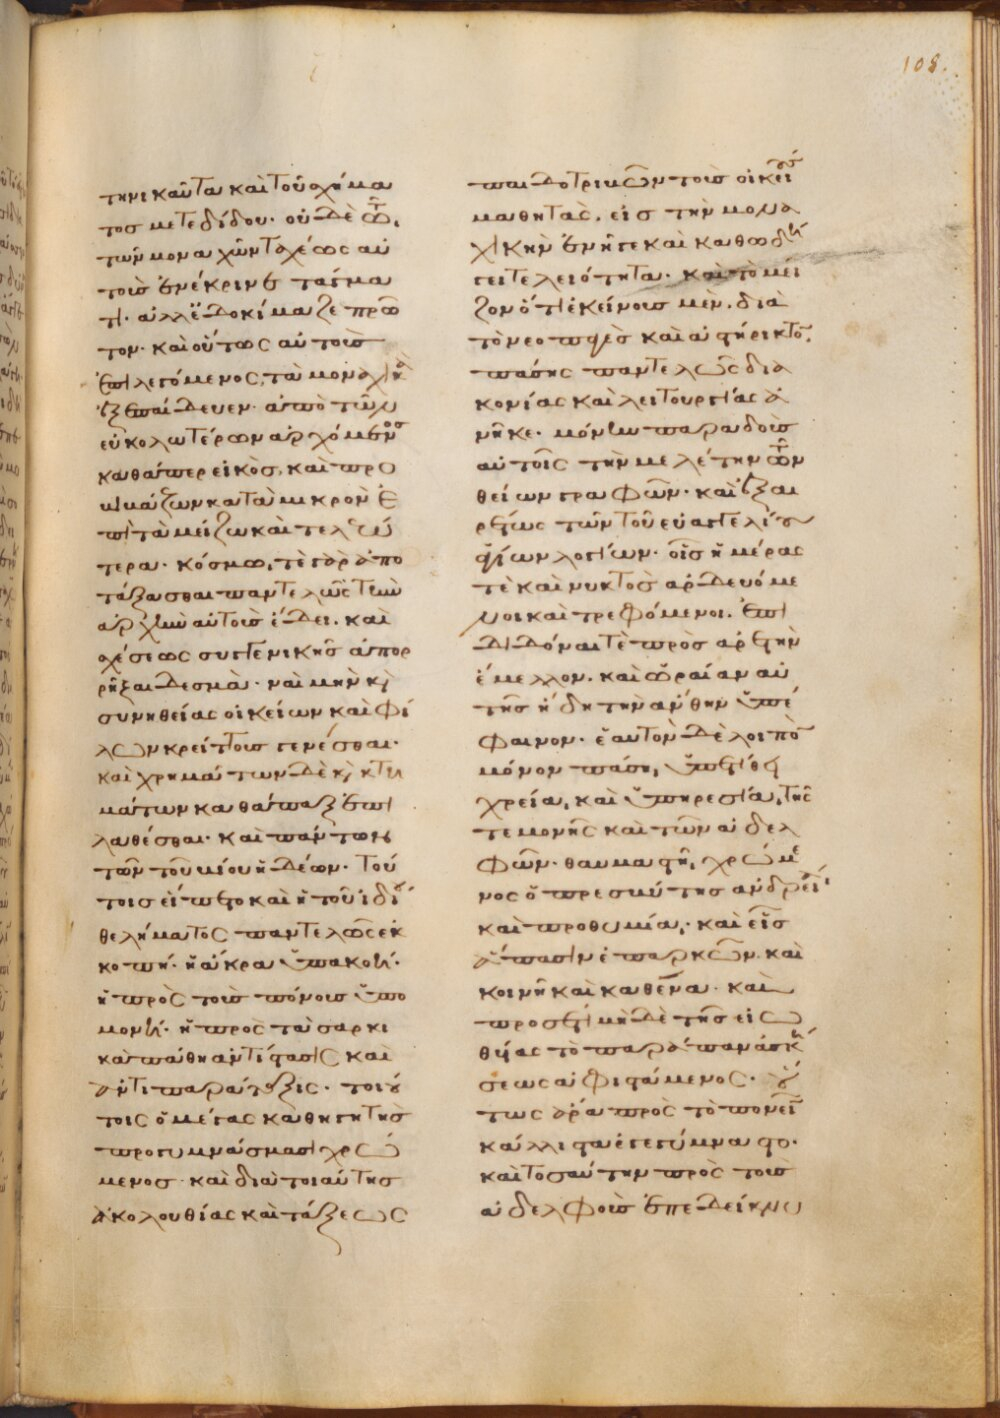 108.
τηνικαῦτα καὶ τοῦ σχήμα
τος μετεδίδου· οὐδὲ τῶ
τῶν μοναχῶν ταχέως αὐ
τοὺς ἐνέκρινε τάγμα
τι· ἀλλ' ἐδοκίμαζε πρῶ
τον· καὶ οὕτως αὐτοὺς
ἐπιλεγόμενος, τὰ μοναχικὰ
ἐξεπαίδευεν· ἀπὸ τῶν
εὐκολωτέρων ἀρχόμενος
καθάπερ εἰκὸς, καὶ προ
βιβάζων κατὰ μικρὸν ἐ
πὶ τὰ μείζω καὶ τελεώ
τερα· κόσμω, τὲ γὰρ ἀπο
τάξασθαι παντελῶς τὴν
ἀρχὴν αὐτοὺς ἔδει· καὶ
σχέσεως συγγενικῆς ἀπορ
ρῆξαι δεσμὰ· ναὶ μὴν κ(αὶ)
συνηθείας οἰκείων καὶ φί
λων κρείττους γενέσθαι·
καὶ χρημάτων δὲ κ(αὶ) κτη
μάτων καθάπαξ ἐπι
λαθέσθαι· καὶ πάντων
τῶν τοῦ βίου ἡδέων· τού
τοις εἵπετο καὶ ἡ τοῦ ἰδίου
θελήματος παντελῶς ἐκ
κοπή· ἡ ἄκρα ὑπακοή·
ἡ πρὸς τοὺς πόνους ὑπο
μονή· ἡ πρὸς τὰ σαρκι
κὰ πάθη ἀντίστασις καὶ
ἀντιπαράταξις· τοιού
τοις ὁ μέγας καθηγητὴς
προγυμνάσμασι χρώ
μενος· καὶ διὰ τοιαύτης
ἀκολουθίας καὶ τάξεως
παιδοτριβῶν τοὺς οἰκείους
μαθητὰς, εἰς τὴν μονα
χικὴν ἐνῆγε καὶ καθωδή
γει τελειότητα· καὶ τὸ μεῖ
ζον ὅτι ἐκείνοις μὲν, διὰ
τὸ νεοπαγὲς καὶ ἀστήρικτον,
πάσης παντελῶς δια
κονίας καὶ λειτουργίας ἀ
νῆκε· μόνην παραδοὺς
αὐτοῖς τὴν μελέτην τῶν
θείων γραφῶν· καὶ ἐξαι
ρέτως τῶν τοῦ εὐαγγελίου
θείων λογίων· οἷς ἡμέρας
τὲ καὶ νυκτὸς ἀρδευόμε
νοι καὶ τρεφόμενοι. ἐπι
διδόναι τὲ πρὸς ἀρετὴν
ἔμελλον· καὶ ὡραίαν αὐ
τῆς ἤδη τὴν ἄνθην ὑπέ
φαινον· ἑαυτὸν δὲ λοιπὸν
μόνον πάση, ὑπετίθει
χρεία, καὶ ὑπηρεσία, τῆς
τε μονῆς καὶ τῶν ἀδελ
φῶν· θαυμαστῆ, χρώμε
νος ὁ πρεσβύτης ἀνδρεία
καὶ προθυμία,· καὶ εἷς
ἅπασιν ἐπαρκῶν· καὶ
κοινῆ καὶ καθένα· καὶ
προσέτι μηδὲ τῆς εἰω
θυίας τὸ παράπαν ἀσκή
σεως ἀφιστάμενος· οὕ
τως ἄρα πρὸς τὸ πονεῖν
κάλλιστα ἐγεγύμναστο·
καὶ τοσαύτην πρὸς τοὺς
ἀδελφοὺς ἐπεδείκνυ